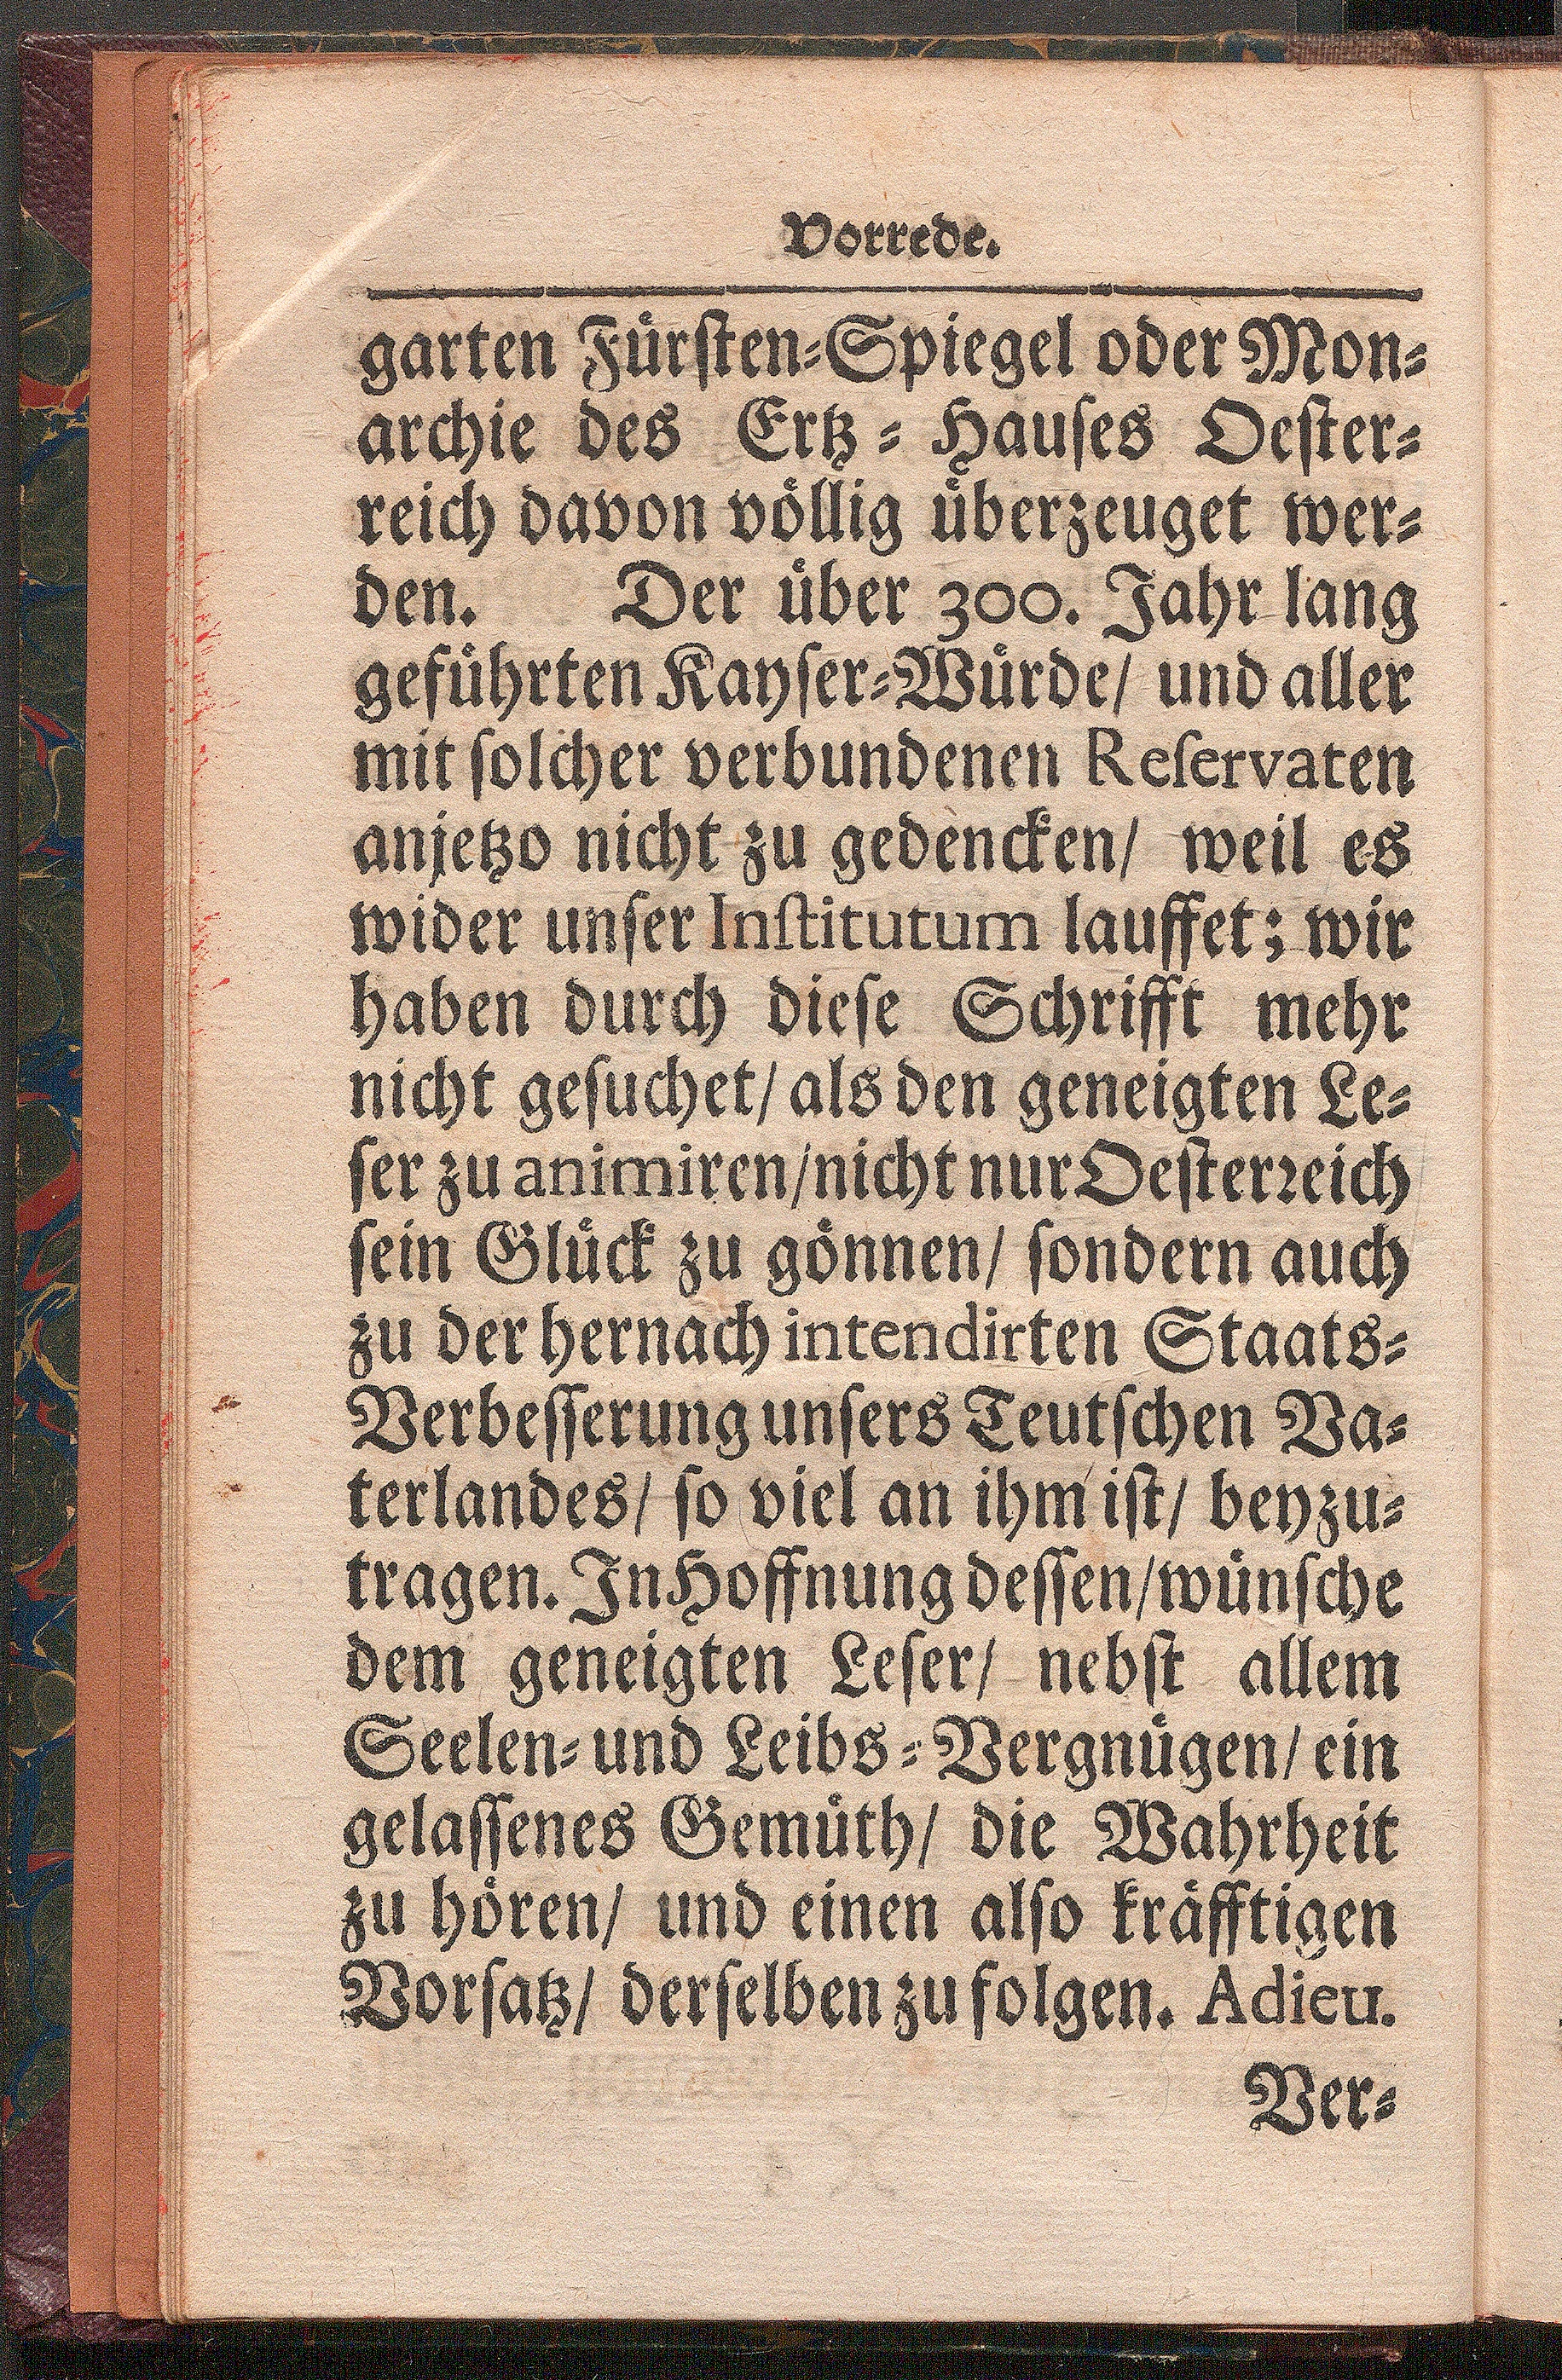 Vorrede.
garten Fürſten⸗Spiegel oder Mon⸗
archie des Ertz⸗Hauſes Oeſter⸗
reich davon völlig überzeuget wer⸗
den. Der über 300. Jahr lang
geführten Kayſer⸗Würde/ und aller
mit ſolcher verbundenen Reſervaten
anjetzo nicht zu gedencken/ weil es
wider unſer Inſtitutum lauffet; wir
haben durch dieſe Schrifft mehr
nicht geſuchet/ als den geneigten Le⸗
ſer zu animiren/ nicht nur Oeſterꝛeich
ſein Glück zu gönnen/ ſondern auch
zu der hernach intendirten Staats⸗
Verbeſſerung unſers Teutſchen Va⸗
terlandes/ ſo viel an ihm iſt/ beyzu⸗
tragen. In Hoffnung deſſen/ wünſche
dem geneigten Leſer/ nebſt allem
Seelen⸗ und Leibs⸗Vergnügen/ ein
gelaſſenes Gemüth/ die Wahrheit
zu hören/ und einen alſo kräfftigen
Vorſatz/ derſelben zu folgen. Adieu.
Ver⸗